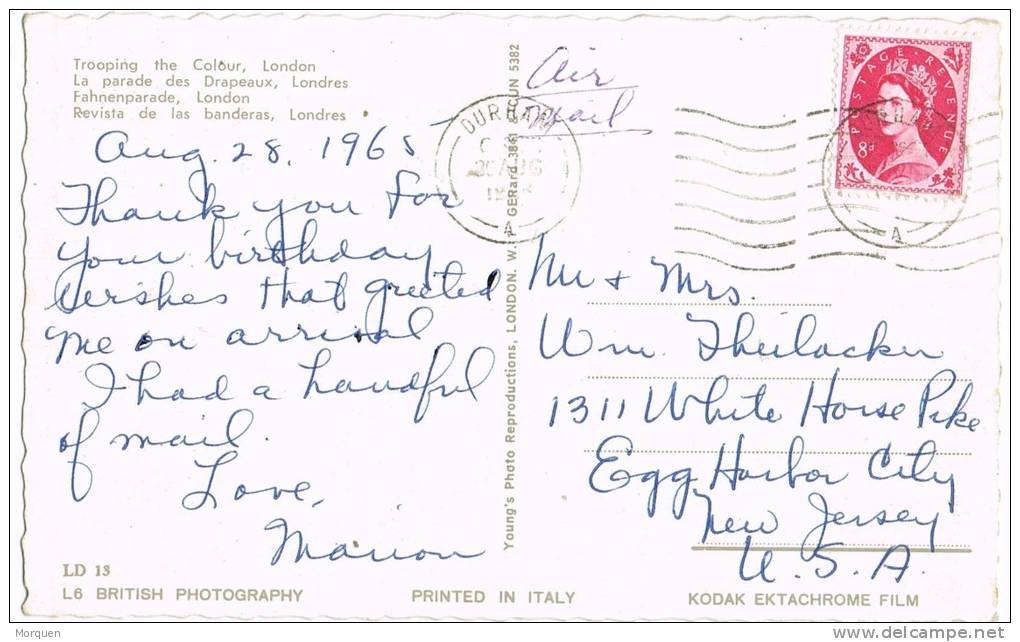 Trooping the Colour, London
La parade des Drapeaux, Londres
Fahnenparade, London
Revista de las banderas, Londres
Aug. 28, 1965
Thank you for
your birthday
wishes that greeted
me on arrival
I had a handful
of mail.
Love,
Marion
LD 13
L6 BRITISH PHOTOGRAPHY
PRINTED IN ITALY
KODAK EKTACHROME FILM
Young's Photo Reproductions, LONDON. W. GERard 3861 & 5382
Air
Mail
DURHAM
AUG
A
POSTAGE REVENUE
8d
A
Mr + Mrs.
Wm. Theilacker
1311 White Horse Pike
Egg Harbor City
New Jersey
U.S.A.
Morquen
www.delcampe.net